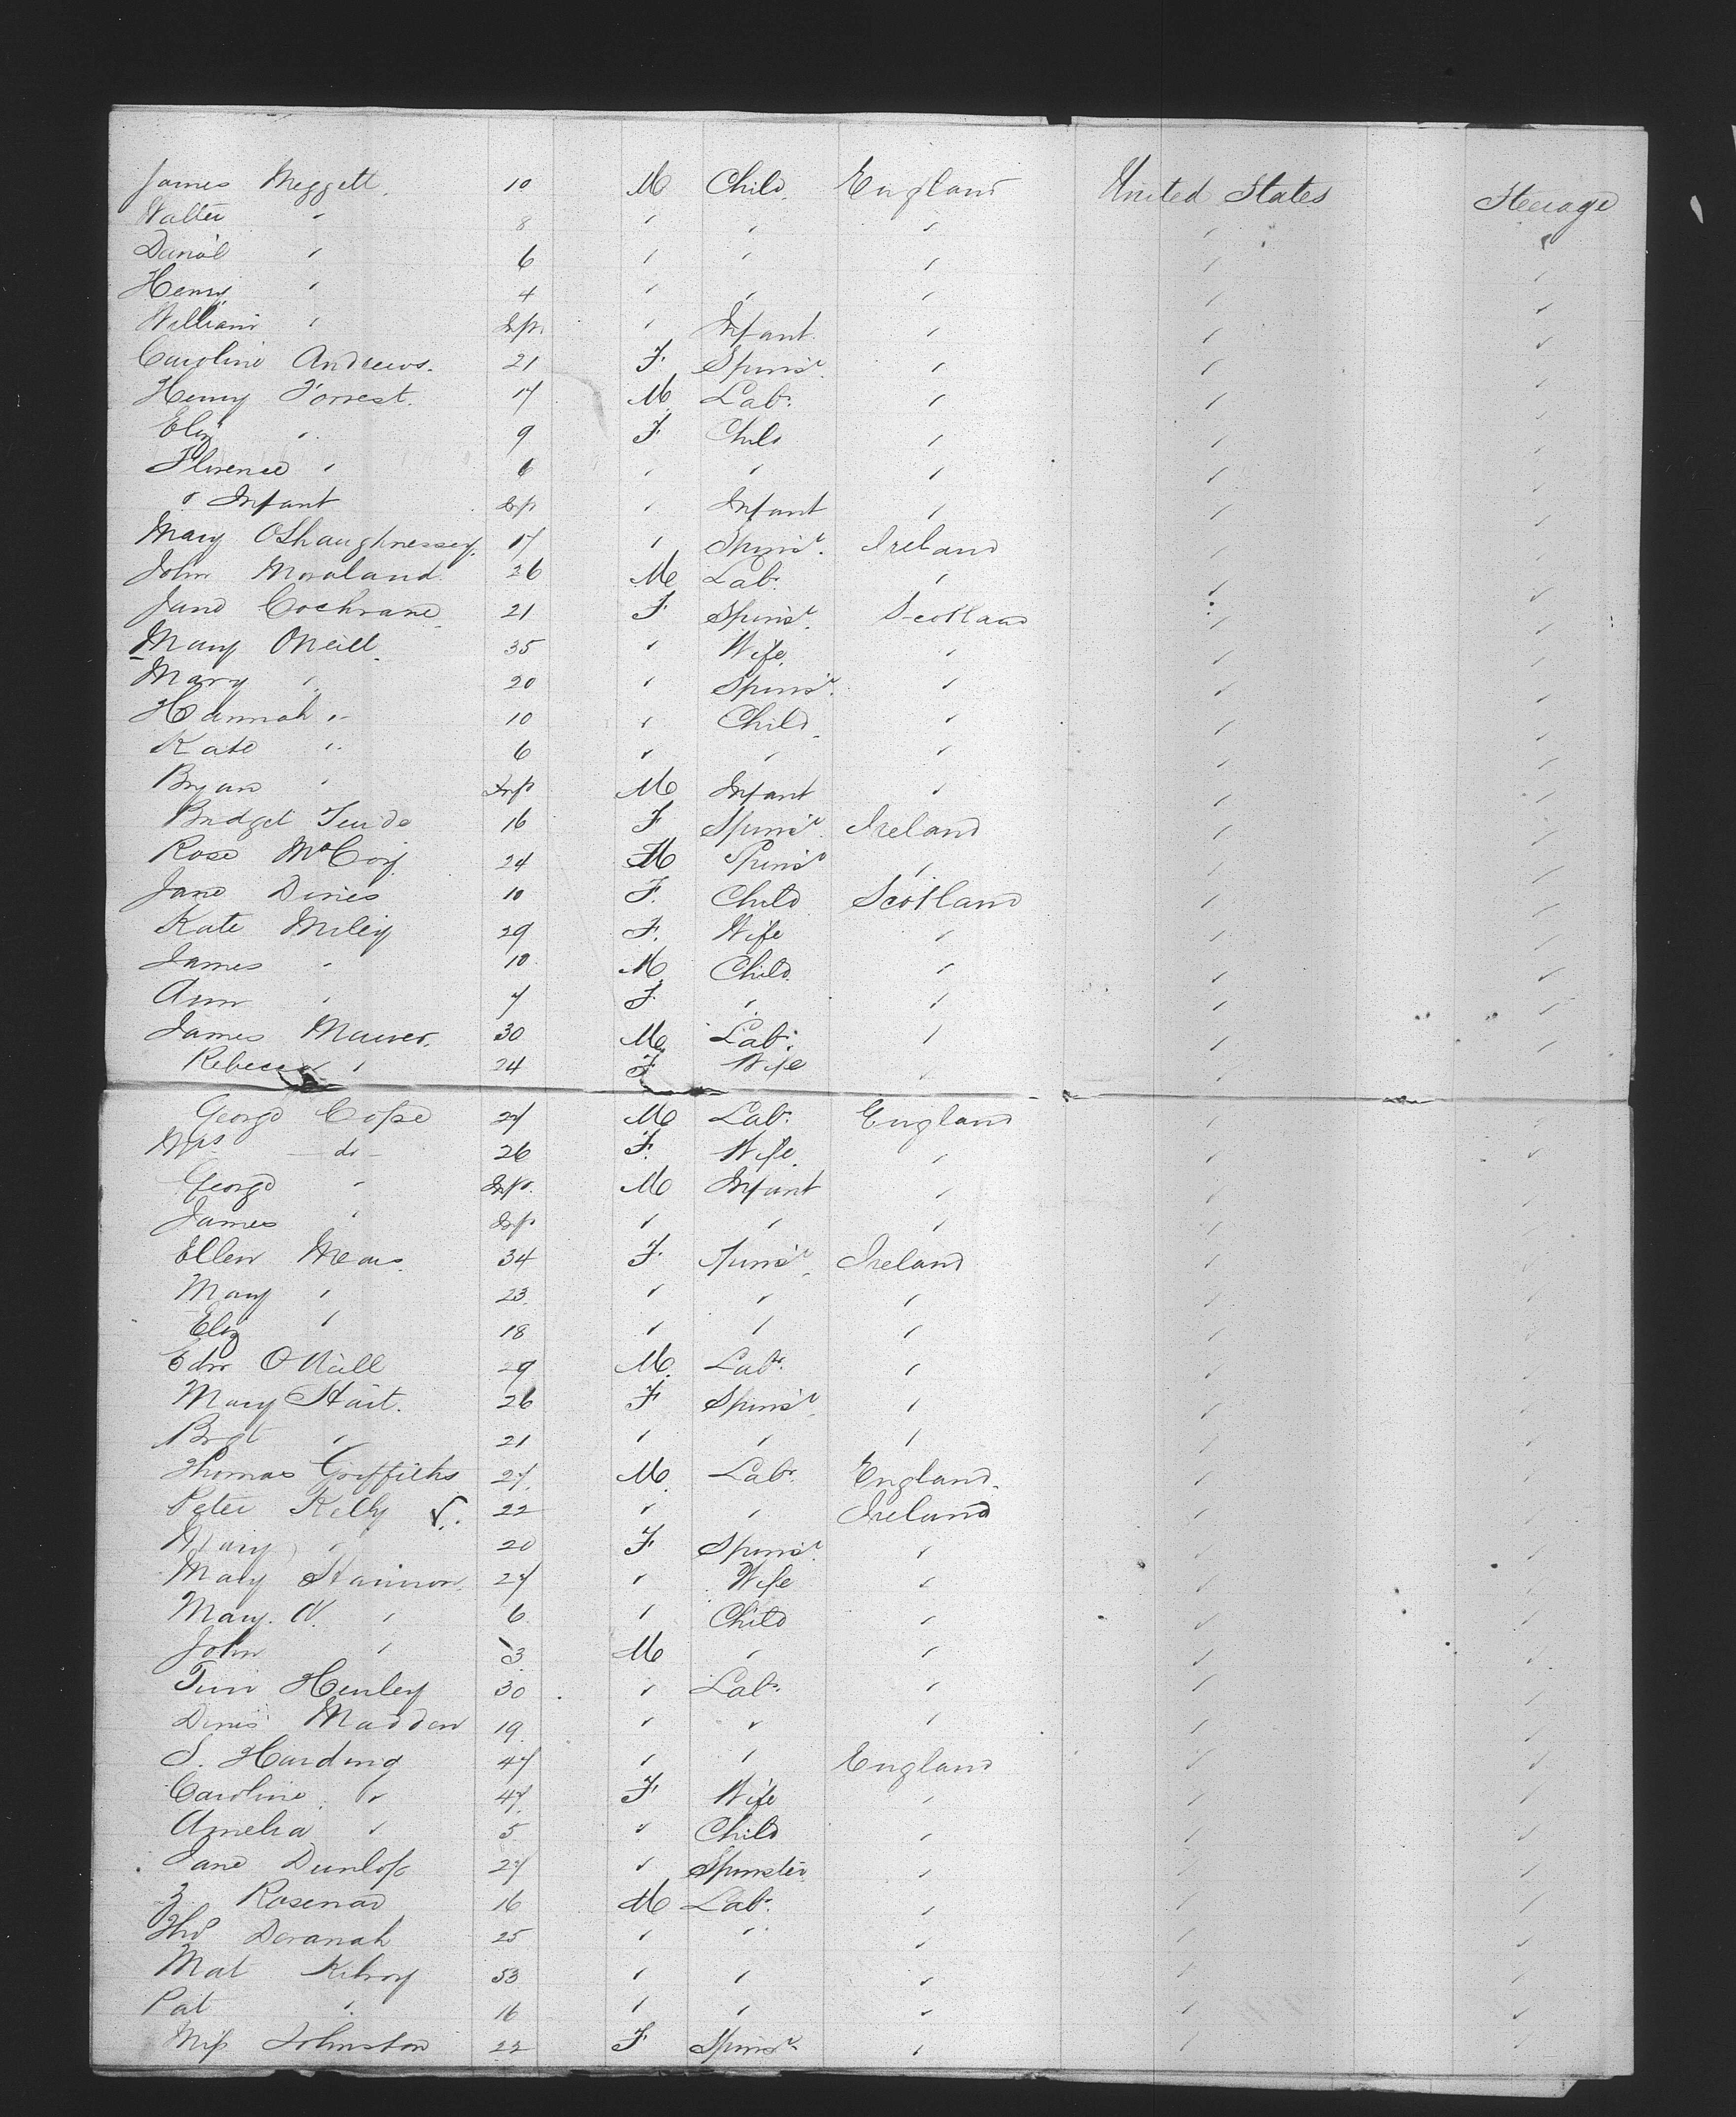 James Meggett. 10 M Child. England United States Steerage
Walter " 8 " " " " "
Daniel " 6 " " " " "
Henry " 4 " " " " "
William " Inft " Infant " " "
Caroline Andrews. 21 F Spinstr " " "
Henry Forrest. 17 M Labr " " "
Eliz " 9 F Child " " "
Florence " 6 " " " " "
" Infant Inft " Infant " " "
Mary OShaughnessey. 17 " Spinstr. Ireland " "
John Moraland 26 M Labr " " "
Jane Cochrane 21 F Spinstr. Scotland " "
Mary ONeill 35 " Wife " " "
Mary " 20 " Spinstr. " " "
Hannah " 10 " Child " " "
Kate " 6 " " " " "
Bryan " Inft M Infant " " "
Bridget 16 F Spinstr Ireland " "
Rose McCoy 24 M Spinstr " " "
Jane Dines 10 F. Child Scotland " "
Kate Miley 29 F. Wife " " "
James " 10 M Child " " "
Ann " 7 F " " " "
James 30 M Labr " " "
Rebecca " 24 F Wife " " "
George Cope 27 M Labr England " "
Mrs — do — 26 F. Wife " " "
George " Inft M Infant " " "
James " Inft " " " " "
Ellen Mears 34 F Spinstr Ireland " "
Mary " 23 " " " " "
Eliz " 18 " " " " "
Edw ONeill 29 M Labr " " "
Mary Hart. 26 F Spinstr " " "
Brgt " 21 " " " " "
Thomas Griffiths 27 M Labr England. " "
Peter Kelly 22 " " Ireland " "
Mary " 20 F Spinstr. " " "
Mary Hannon 27 " Wife " " "
Mary. A. " 6 " Child " " "
John " 3 M " " " "
Tim Henley 30 " Labr " " "
Denis Madden 19 " " " " "
S. Harding 47 " " England " "
Caroline " 47 F Wife " " "
Amelia " 5 " Child " " "
Jane Dunlop 27 " Spinster " " "
Z Rosenad 16 M Labr. " " "
Thos Doranah 25 " " " " "
Mat Kilroy 53 " " " " "
Pat " 16 " " " " "
Miss Johnston 22 F Spinstr " " "